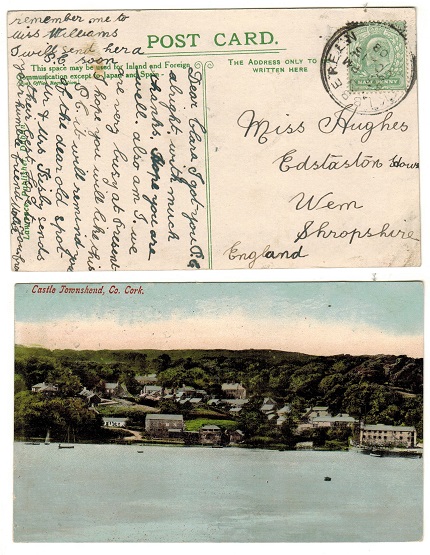 remember me to
Mrs Williams
I will send her a
P.C. soon
POST CARD.
This space may be used for Inland and Foreign
Communication except to Japan and Spain
THE ADDRESS ONLY TO
BE WRITTEN HERE
Dear Clara I got you P.C.
alright with much
thanks, hope you are
well, also am I we
are very busy at Present
I hope you will like this
P.C. it will remind you
of the dear old spot
Mr & Mrs Kiely sends
their best
your humble friend
Miss Hughes
Edstaston House
Wem
Shropshire
England
Castle Townshend, Co. Cork.